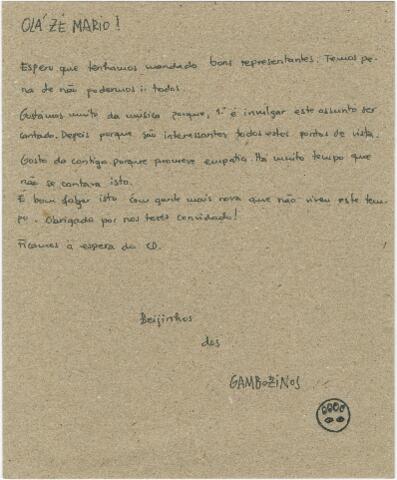 OLÁ ZÉ MARIO!
Espero que tenhamos mandado bons representantes. Temos pe-
na de não podermos ir todos.
Gostamos muito da música porque, 1º é invulgar este assunto ser
cantado. Depois porque são interessantes todos estes pontos de vista.
Gosto da cantiga porque promove empatia. Há muito tempo que
não se cantava isto.
É bom fazer isto com gente mais nova que não viveu este tem-
po. Obrigada por nos teres convidado!
Ficamos à espera do CD.
Beijinhos
dos
GAMBOZINOS